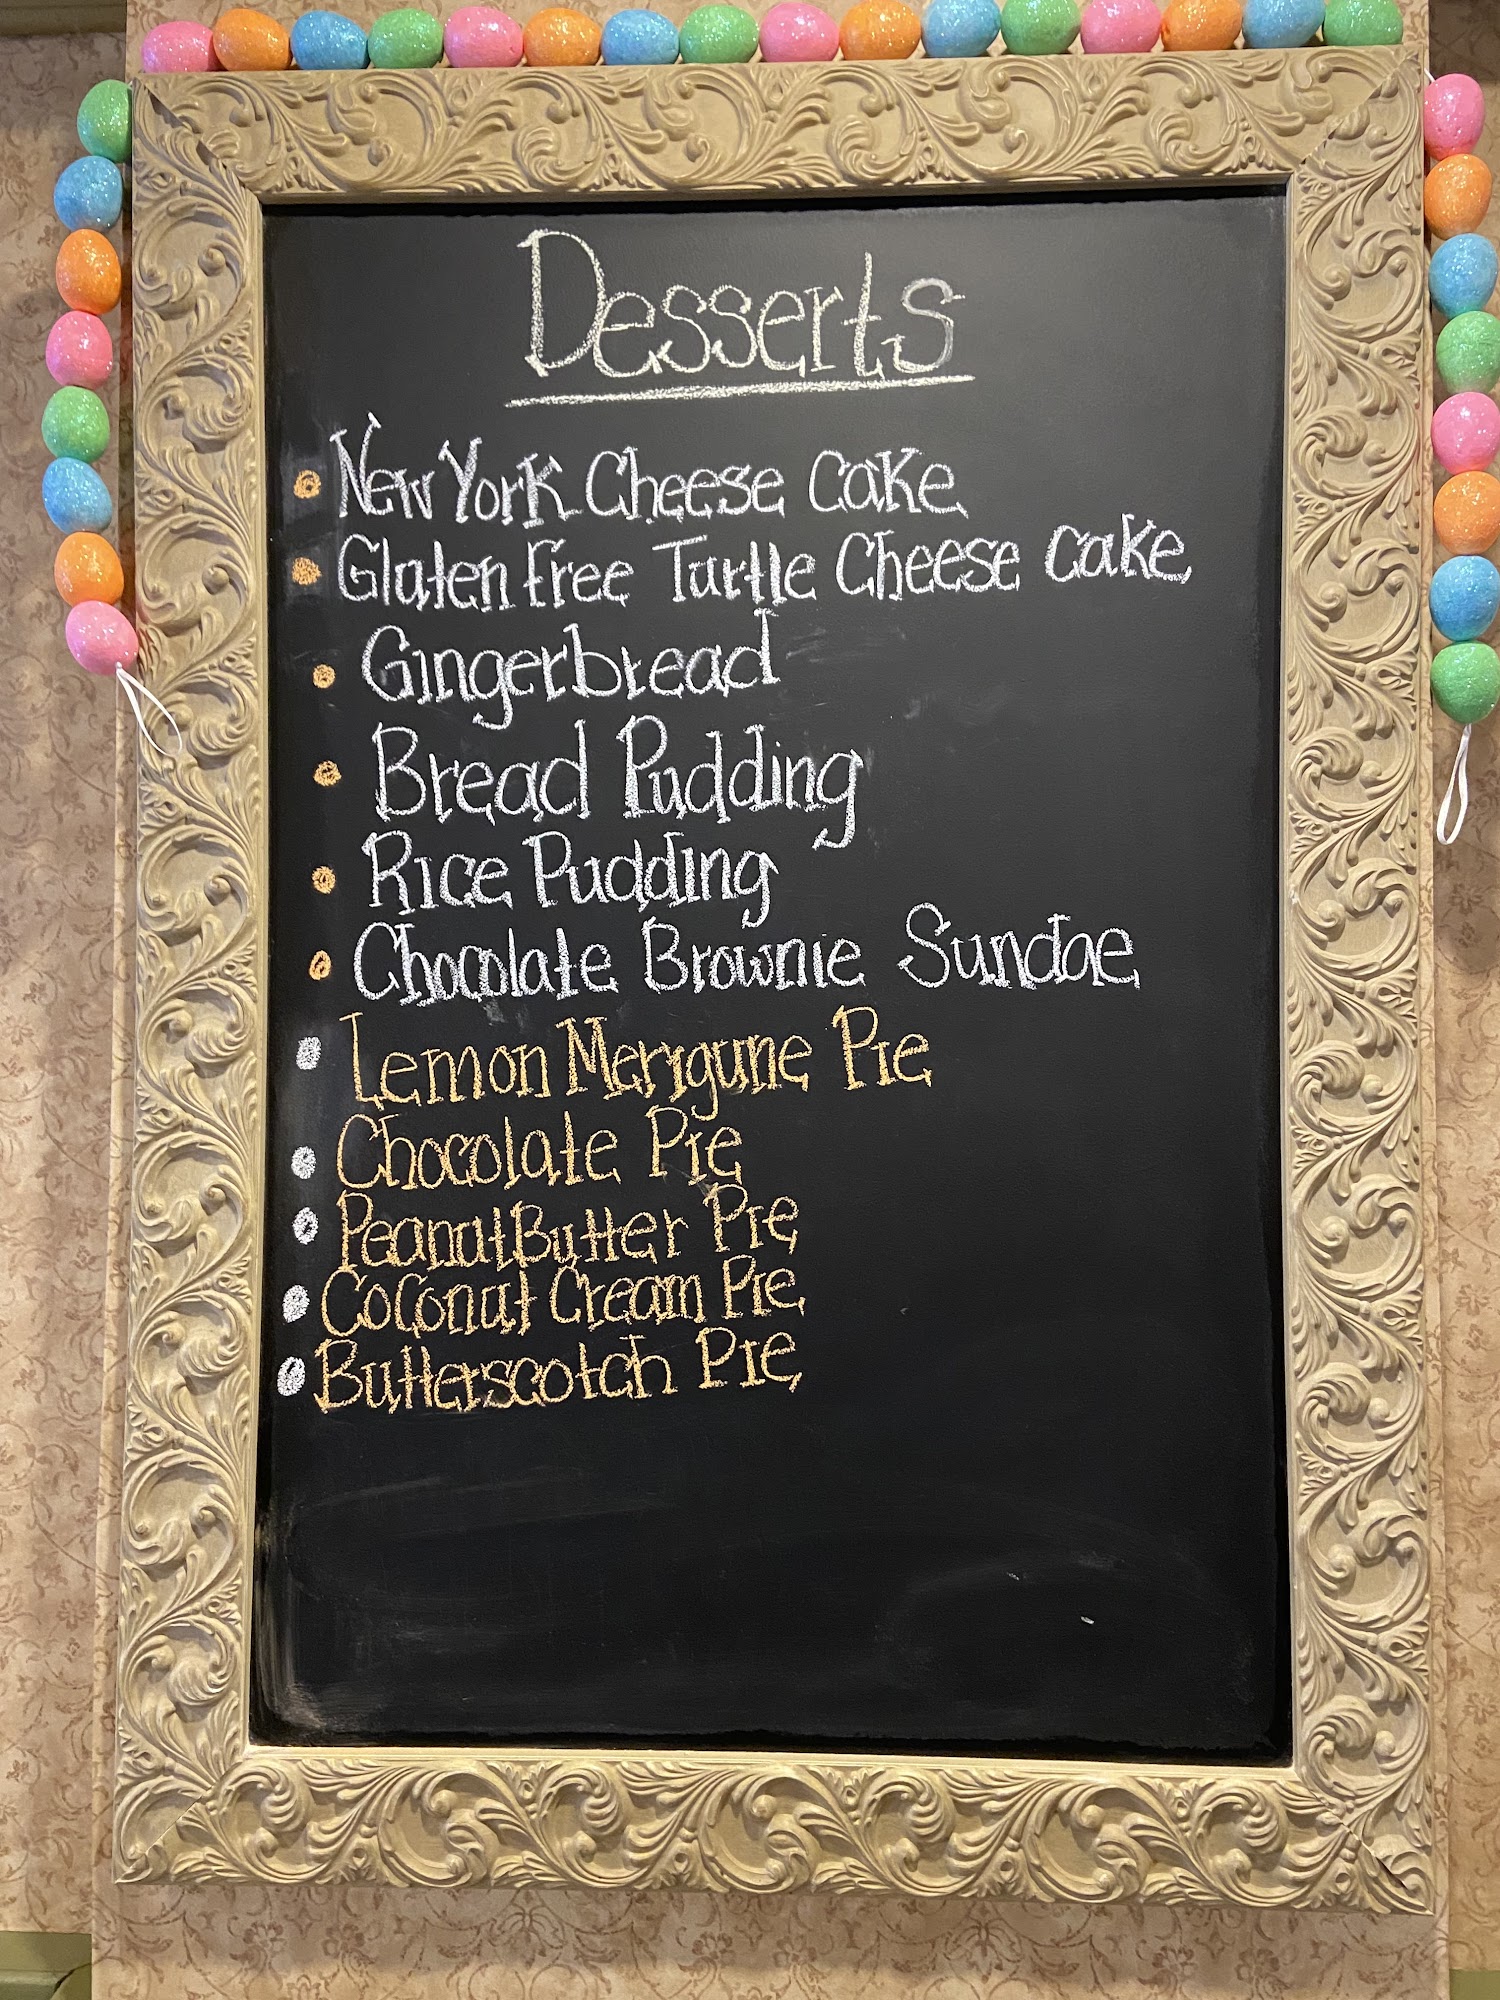 Desserts
New York Cheese Cake
Gluten Free Turtle Cheese Cake
Gingerbread
Bread Pudding
Rice Pudding
Chocolate Brownie Sundae
Lemon Merigune Pie
Chocolate Pie
Peanut Butter Pie
Coconut Cream Pie
Butterscotch Pie